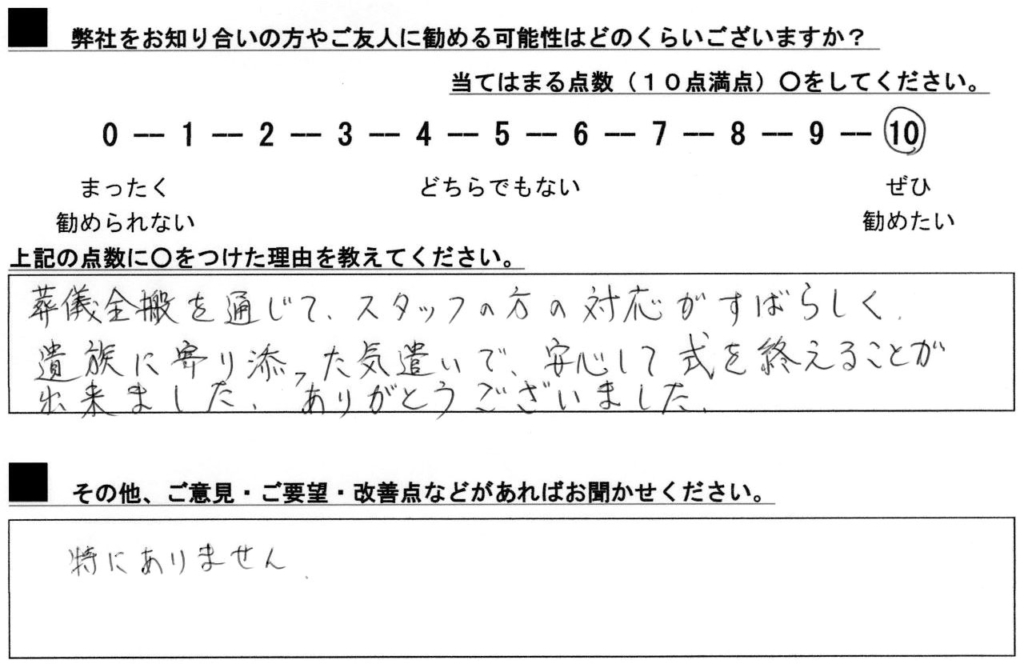 弊社をお知り合いの方やご友人に勧める可能性はどのくらいございますか？
当てはまる点数（１０点満点）〇をしてください。
0 -- 1 -- 2 -- 3 -- 4 -- 5 -- 6 -- 7 -- 8 -- 9 -- 10
まったく どちらでもない ぜひ
勧められない 勧めたい
上記の点数に〇をつけた理由を教えてください。
葬儀全搬を通じて、スタッフの方の対応がすばらしく、
遺族に寄り添った気遣いで、安心して式を終えることが
出来ました。ありがとうございました。
その他、ご意見・ご要望・改善点などがあればお聞かせください。
特にありません。